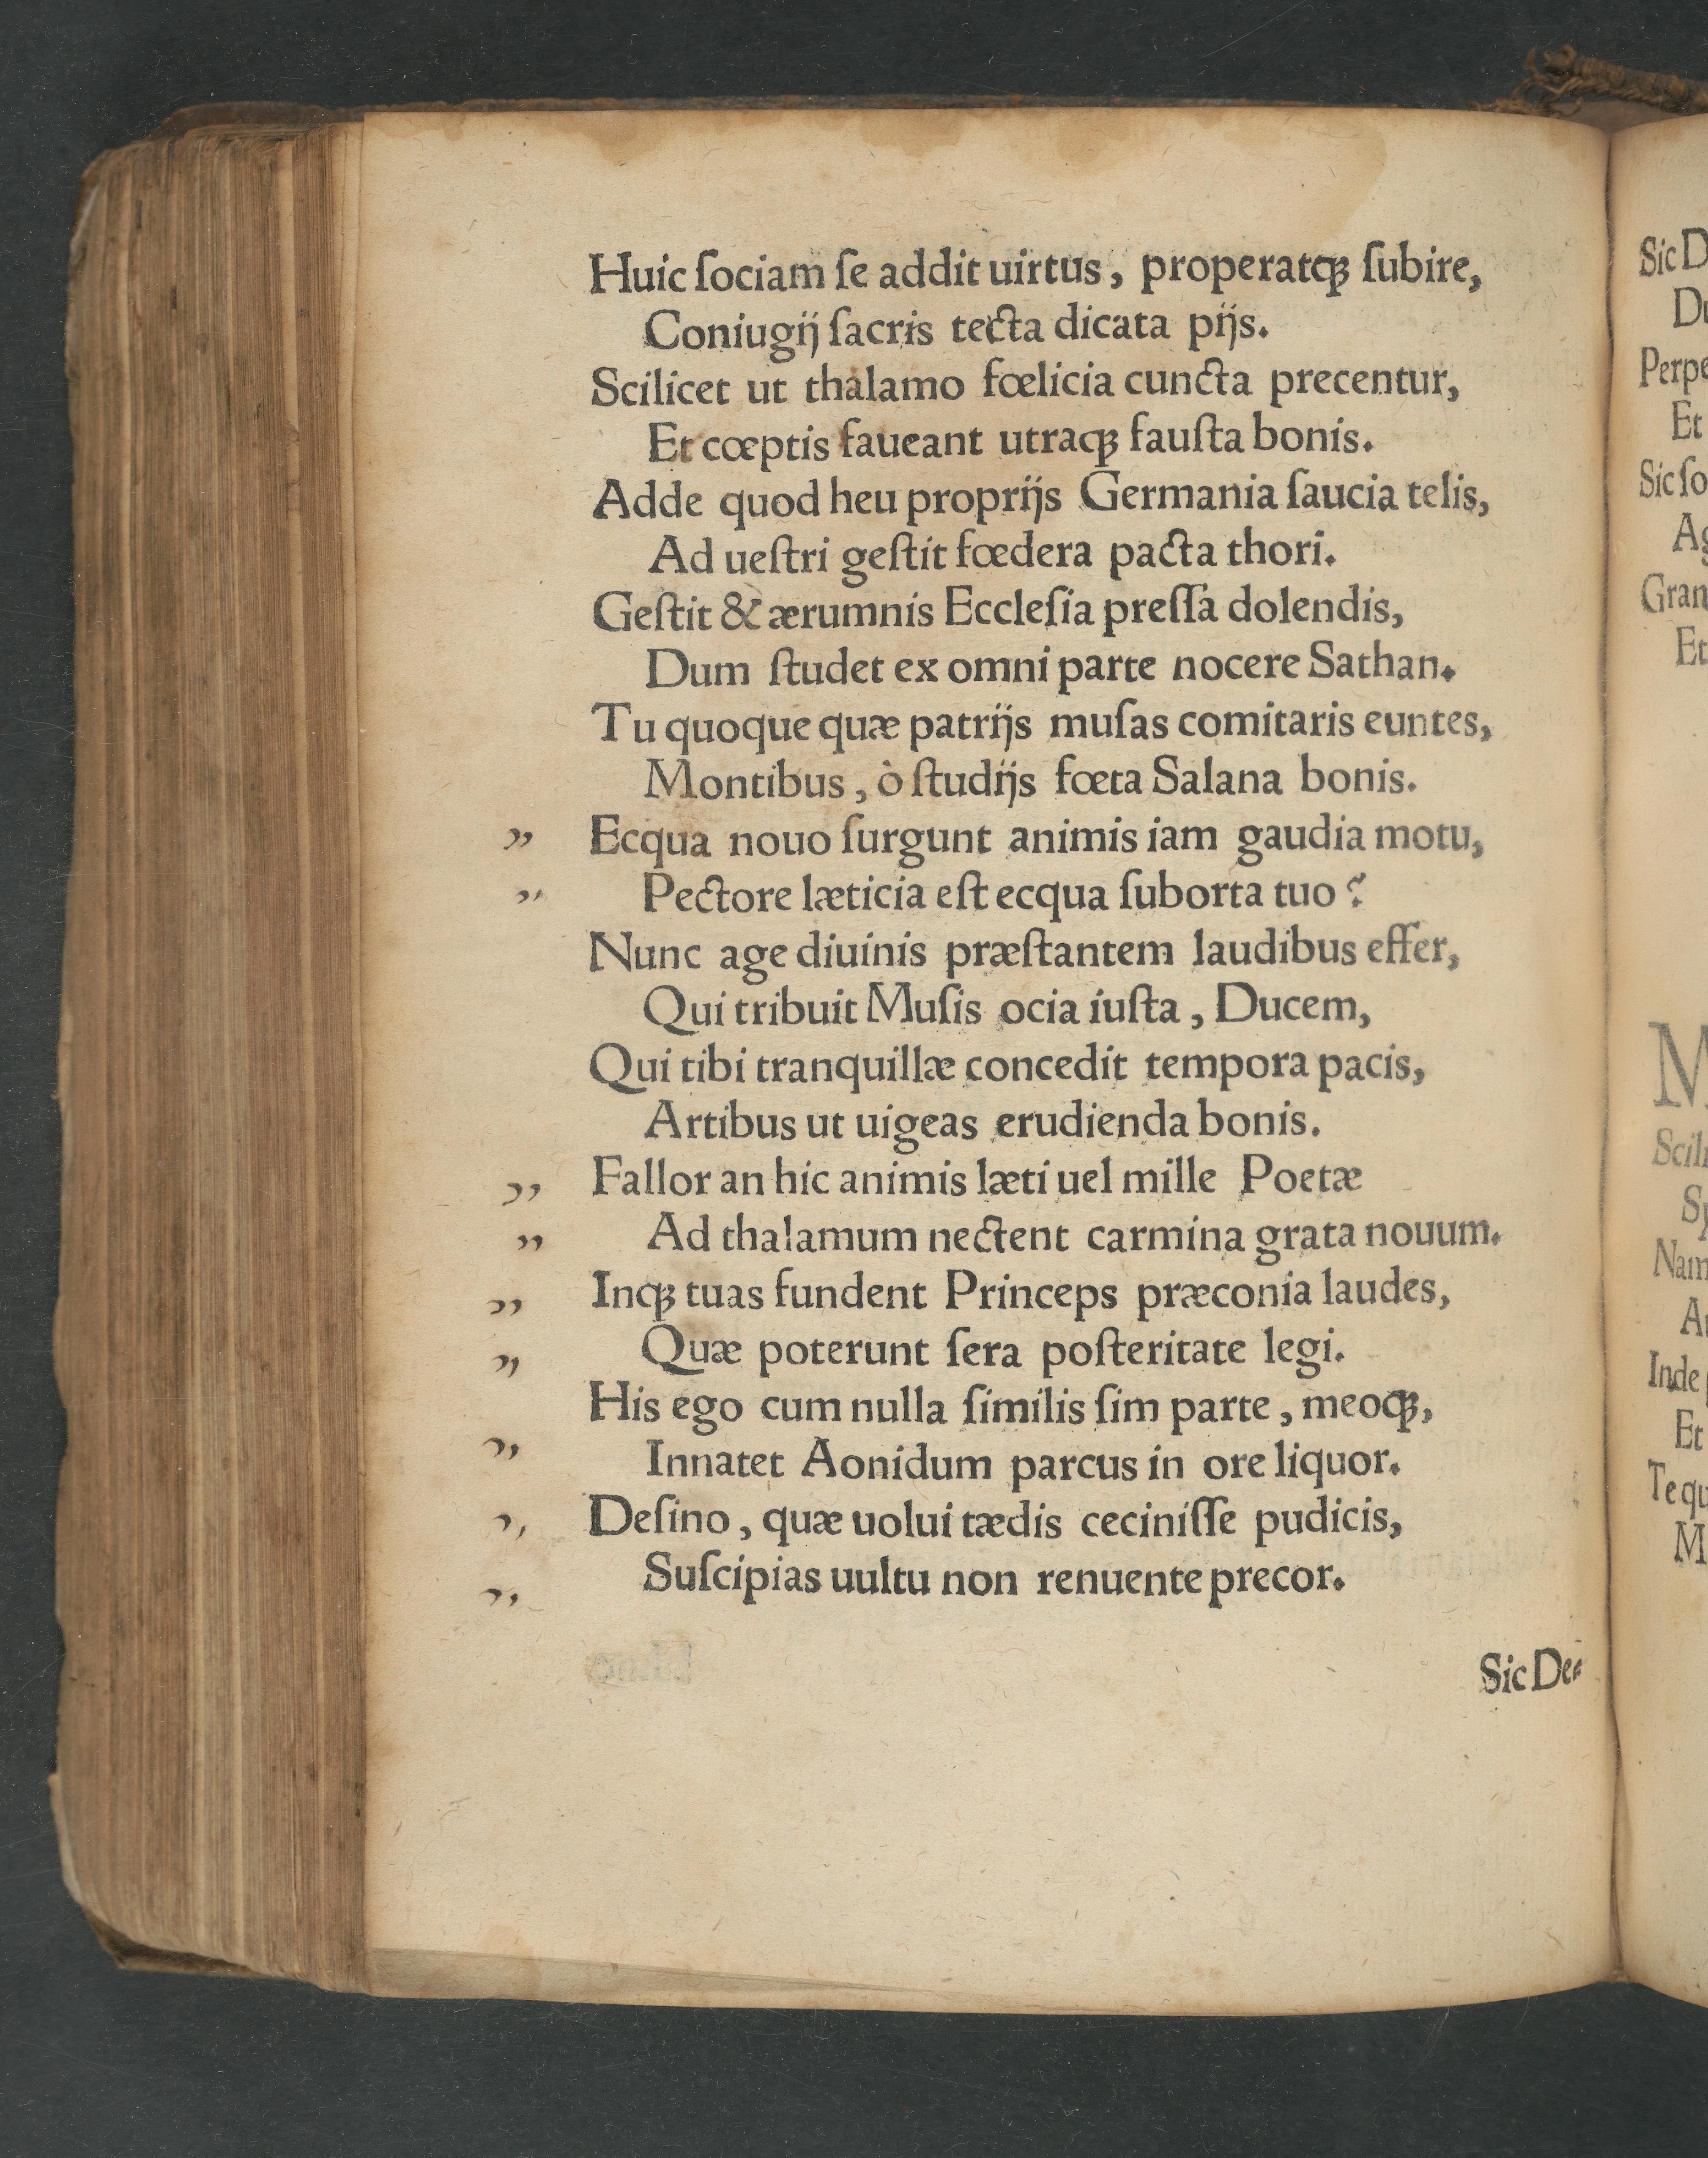 Huic ſociam ſe addit uirtus, properatqꝫ ſubire,
Coniugij ſacris tecta dicata pijs.
Scilicet ut thalamo fœlicia cuncta precentur,
Et cœptis faueant utraqꝫ fauſta bonis.
Adde quod heu proprijs Germania ſaucia telis,
Ad ueſtri geſtit fœdera pacta thori.
Geſtit & ærumnis Eccleſia preſſa dolendis,
Dum ſtudet ex omni parte nocere Sathan.
Tu quoque quæ patrijs muſas comitaris euntes,
Montibus, ò ſtudijs fœta Salana bonis.
” Ecqua nouo ſurgunt animis iam gaudia motu,
” Pectore læticia eſt ecqua ſuborta tuo?
Nunc age diuinis præſtantem laudibus effer,
Qui tribuit Muſis ocia iuſta, Ducem,
Qui tibi tranquillæ concedit tempora pacis,
Artibus ut uigeas erudienda bonis.
” Fallor an hic animis læti uel mille Poetæ
” Ad thalamum nectent carmina grata nouum.
” Inqꝫ tuas fundent Princeps præconia laudes,
” Quæ poterunt ſera poſteritate legi.
His ego cum nulla ſimilis ſim parte, meoqꝫ,
” Innatet Aonidum parcus in ore liquor.
” Deſino, quæ uolui tædis ceciniſſe pudicis,
” Suſcipias uultu non renuente precor.
Sic De⸗
Sic D
Du
Perpe
Et
Sic ſo
Ag
Gran
Et
M
Scili
Sp
Nam
Inde
Et
Te qu
M